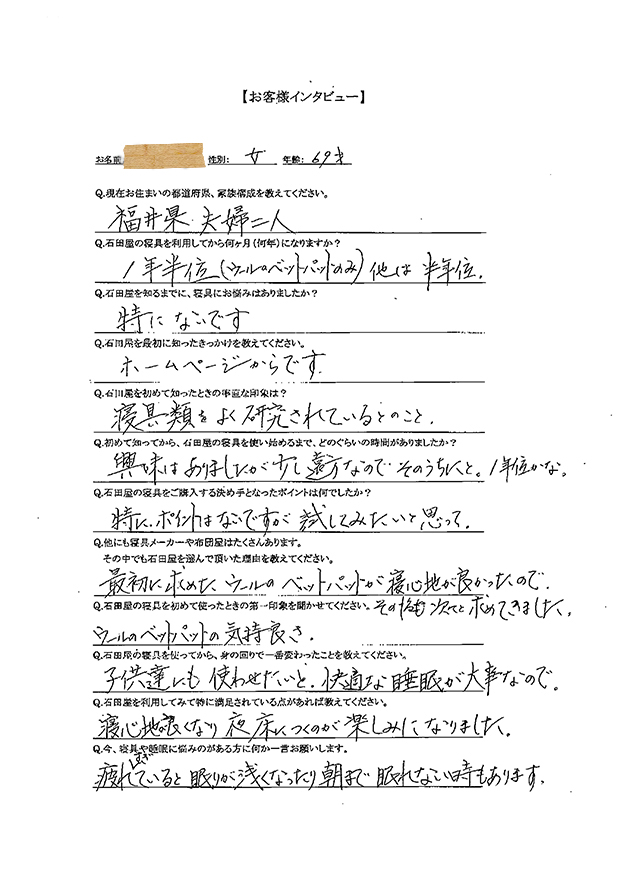 【お客様インタビュー】
お名前 性別: 女 年齢: 69才
Q.現在お住まいの都道府県、家族構成を教えてください。
福井県 夫婦二人
Q.石田屋の寝具を利用してから何ヶ月(何年)になりますか?
1年半位(ウールのベットパットのみ)他は半年位.
Q.石田屋を知るまでに、寝具にお悩みはありましたか?
特にないです
Q.石田屋を最初に知ったきっかけを教えてください。
ホームページからです.
Q.石田屋を初めて知ったときの率直な印象は?
寝具類をよく研究されているとのこと.
Q.初めて知ってから、石田屋の寝具を使い始めるまで、どのぐらいの時間がありましたか?
興味はありましたが少し遠方なのでそのうちにと。1年位かな。
Q.石田屋の寝具をご購入する決め手となったポイントは何でしたか?
特にポイントはないですが試してみたいと思って.
Q.他にも寝具メーカーや布団屋はたくさんあります。
その中でも石田屋を選んで頂いた理由を教えてください。
最初に求めたウールのベットパットが寝心地が良かったので.
その後も次々と求めてきました.
Q.石田屋の寝具を初めて使ったときの第一印象を聞かせてください。
ウールのベットパットの気持良さ.
Q.石田屋の寝具を使ってから、身の回りで一番変わったことを教えてください。
子供達にも使わせたいと.快適な睡眠が大事なので。
Q.石田屋を利用してみて特に満足されている点があれば教えてください。
寝心地が良くなり夜床につくのが楽しみになりました.
Q.今、寝具や睡眠に悩みのある方に何か一言お願いします。
疲れすぎていると眠りが浅くなったり朝まで眠れない時もあります.